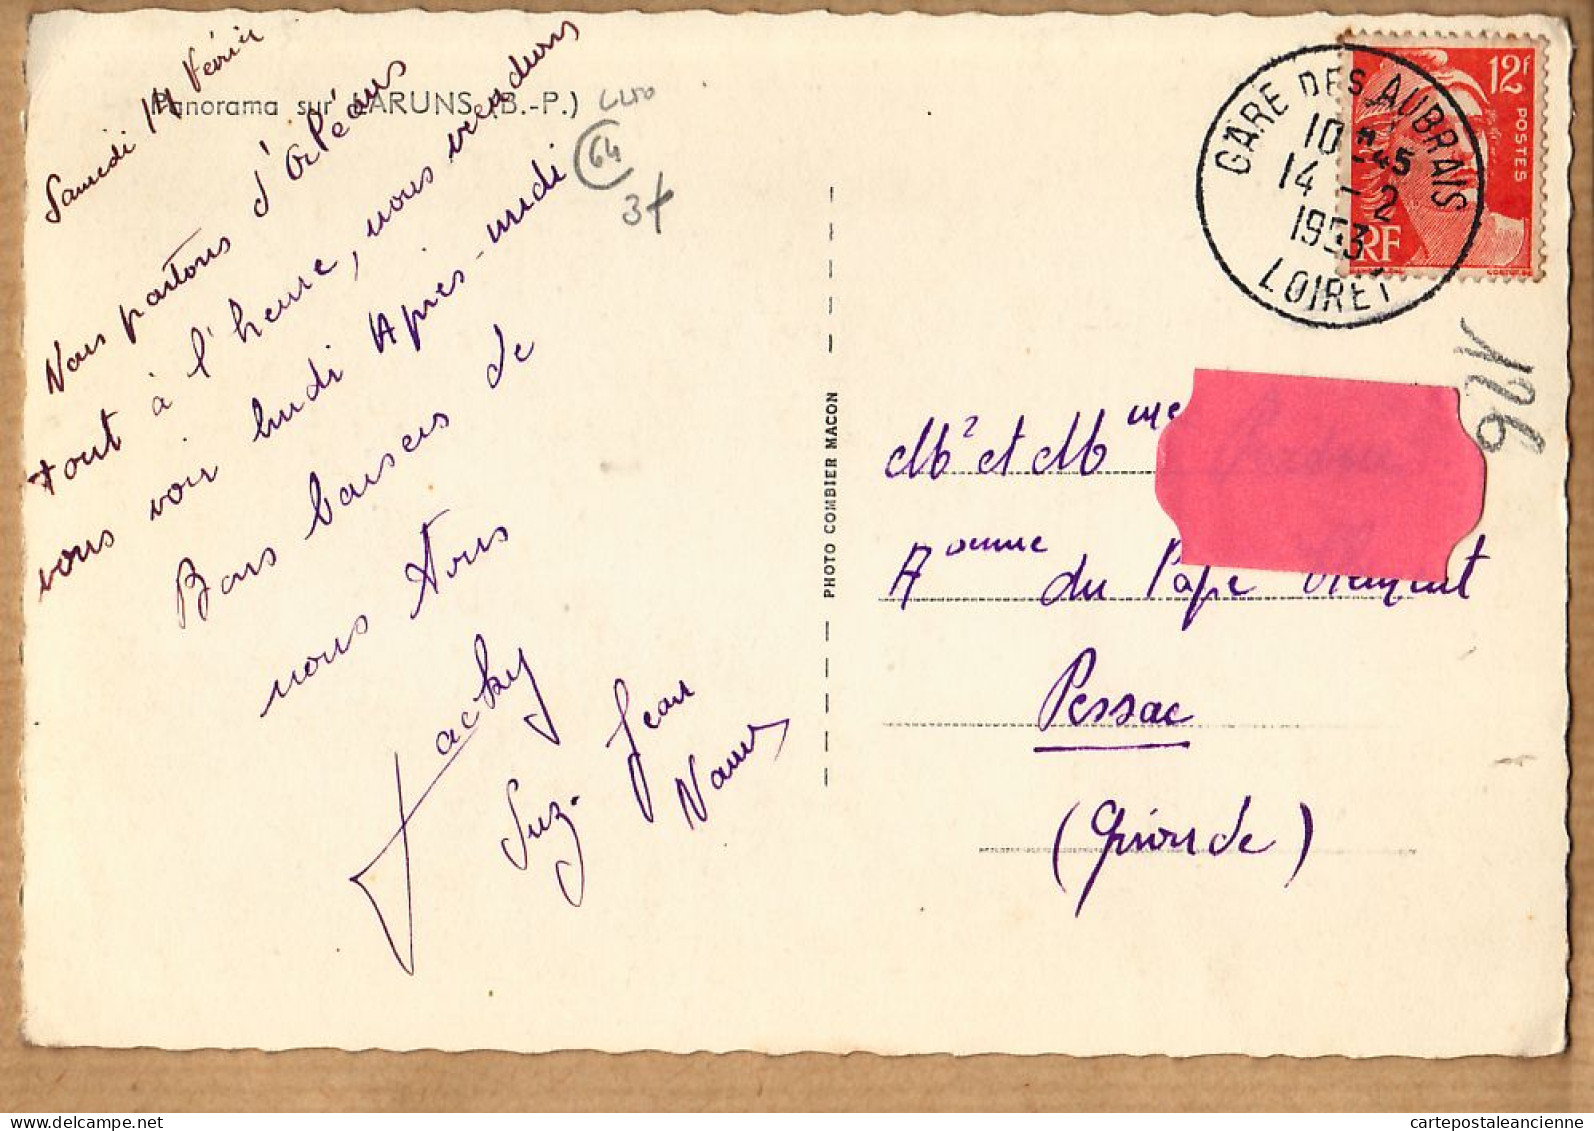 Panorama sur LARUNS (B.-P.)
Samedi 14 Février
Nous partons d'Orléans
tout à l'heure, nous viendrons
vous voir lundi Après-midi
Bons baisers de
nous tous
Jacky
Suz.
Jean
64
3+
PHOTO COMBIER MACON
GARE DES AUBRAIS
10 H 45
14 - 2
1953
LOIRET
12F
POSTES
RF
926
Mr et Mme
Avenue du Pape Clément
Pessac
(Gironde)
cartepostaleancienne